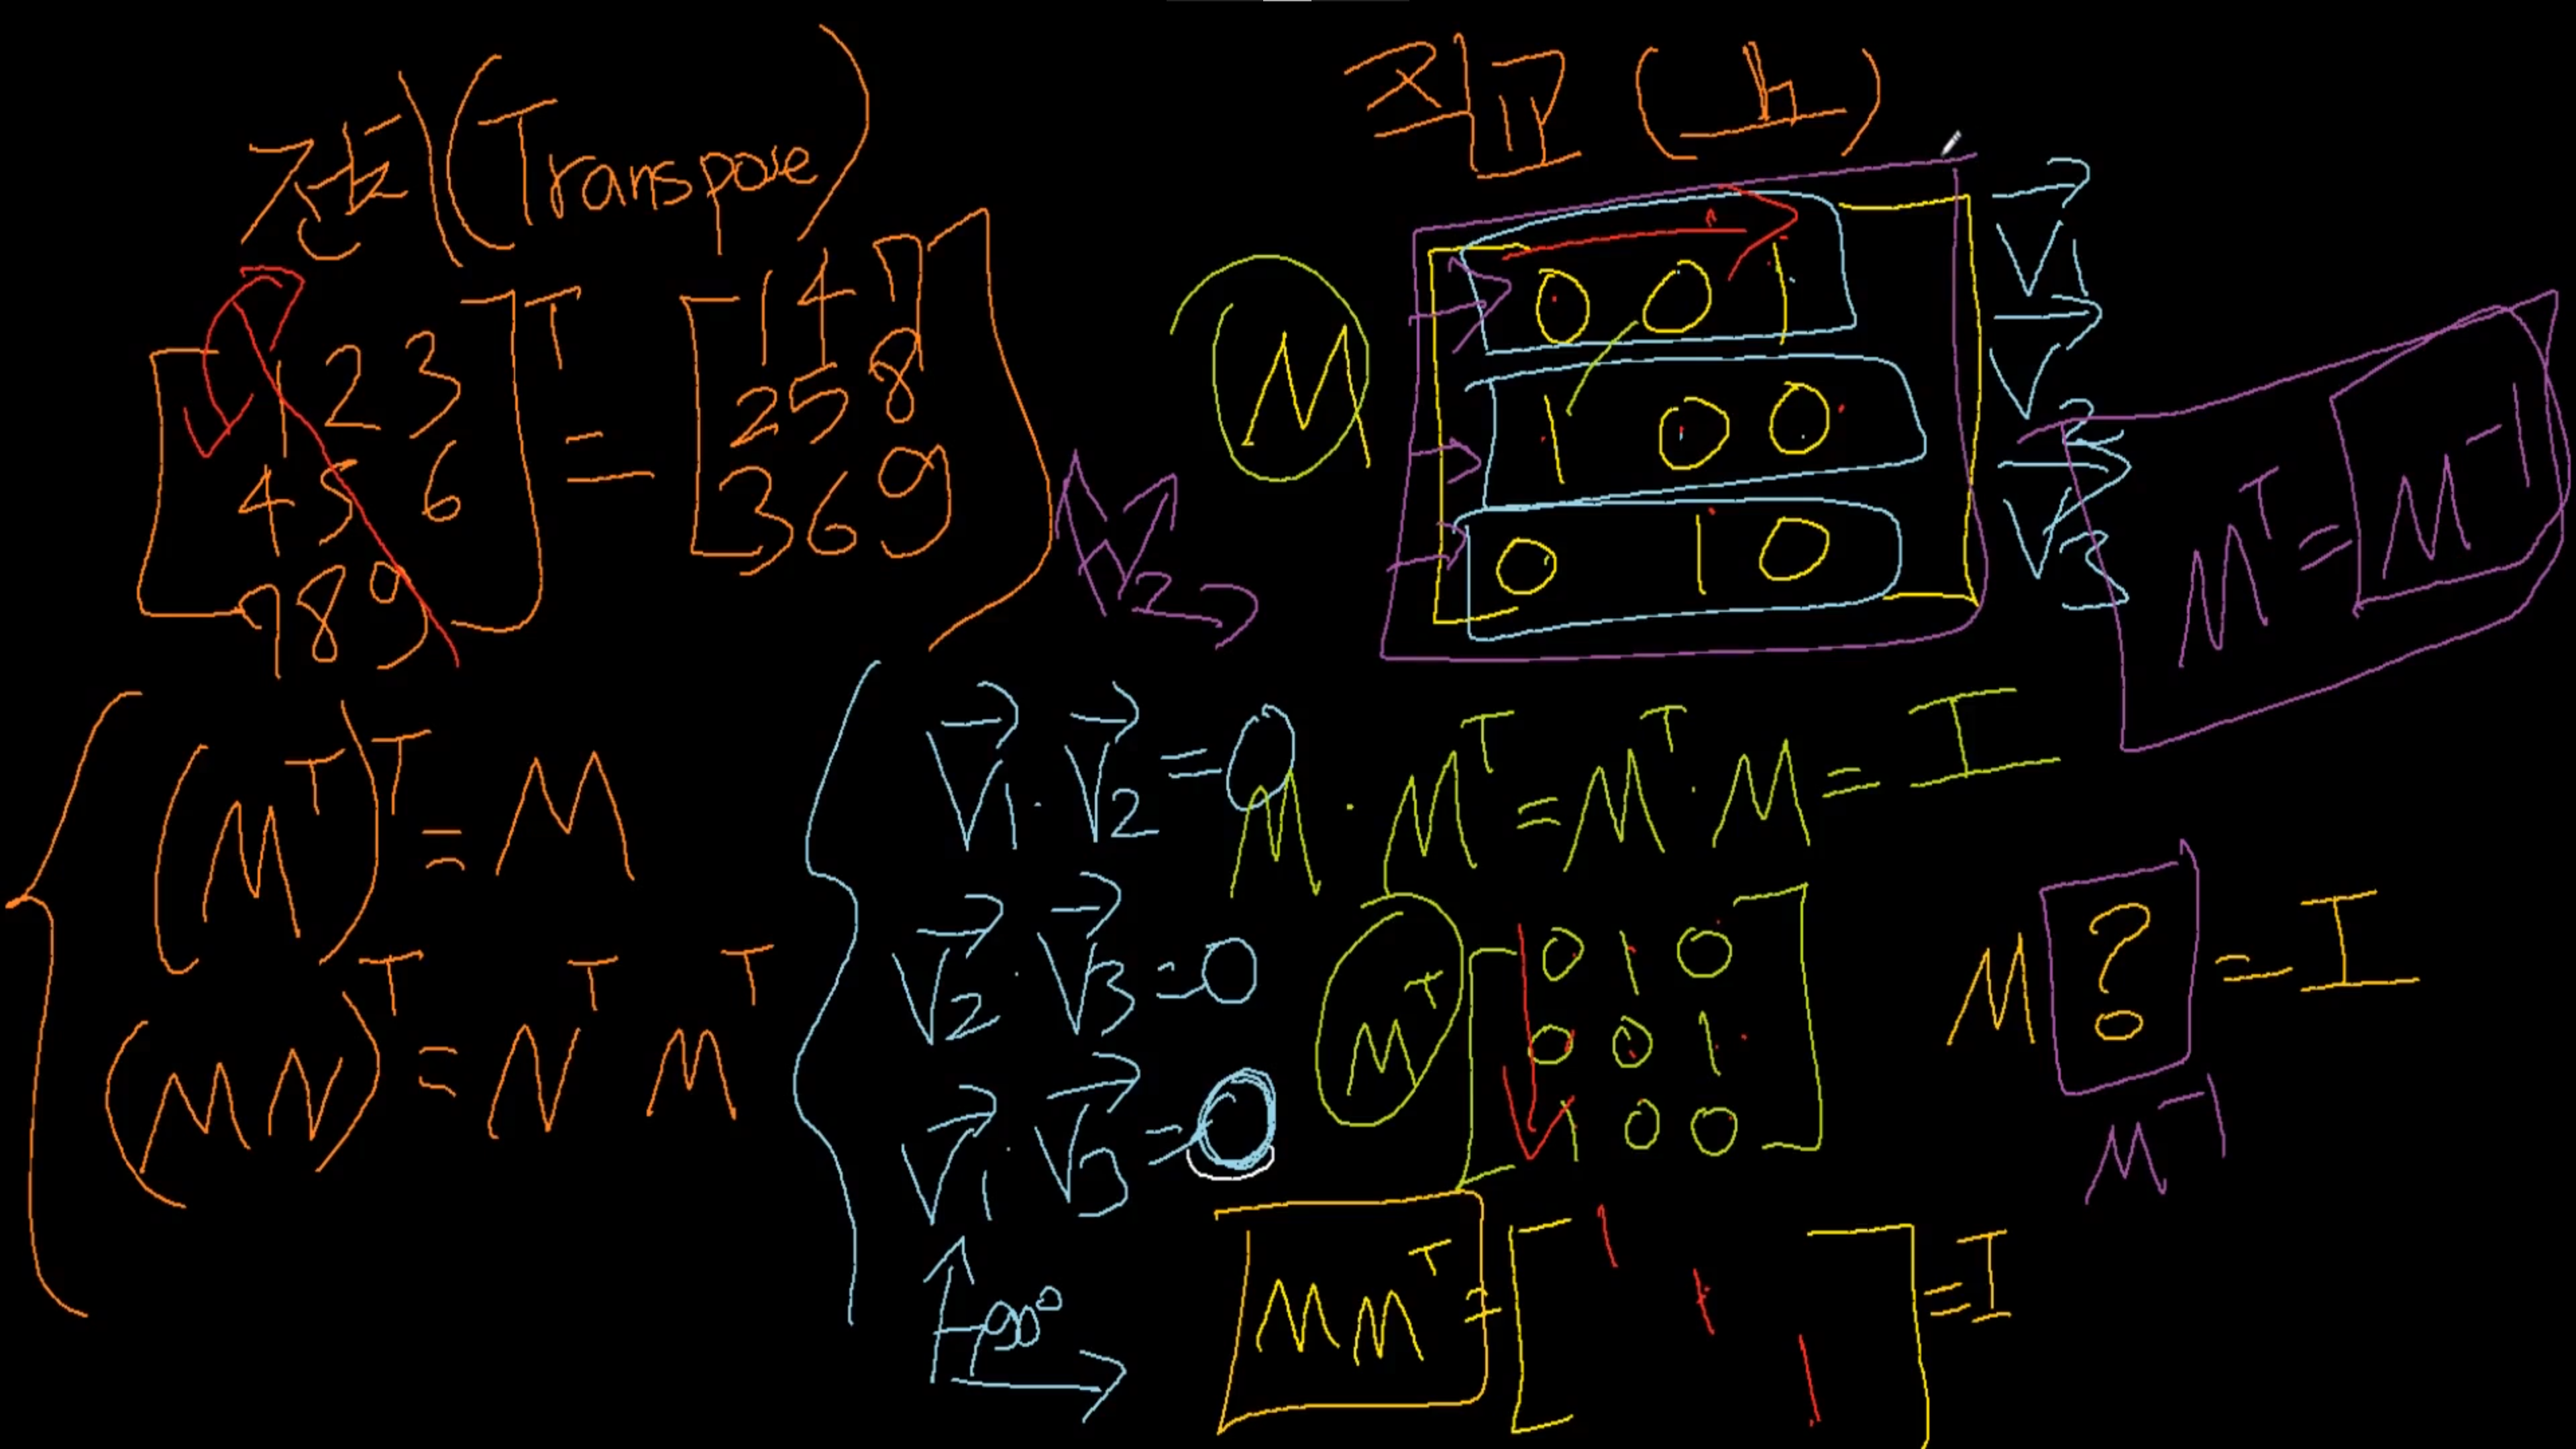 전치(Transpose)
[1 2 3
4 5 6
7 8 9]ᵀ = [1 4 7
2 5 8
3 6 9]
(Mᵀ)ᵀ = M
(MN)ᵀ = Nᵀ Mᵀ
직교 (ㅗ)
M
0 0 1
1 0 0
0 1 0
V⃗1
V⃗2
V⃗3
Mᵀ = M⁻¹
V⃗1 · V⃗2 = 0
V⃗2 · V⃗3 = 0
V⃗1 · V⃗3 = 0
90°
M · Mᵀ = Mᵀ · M = I
Mᵀ
0 1 0
0 0 1
1 0 0
M ? = I
M⁻¹
MMᵀ = [1
1
1] = I